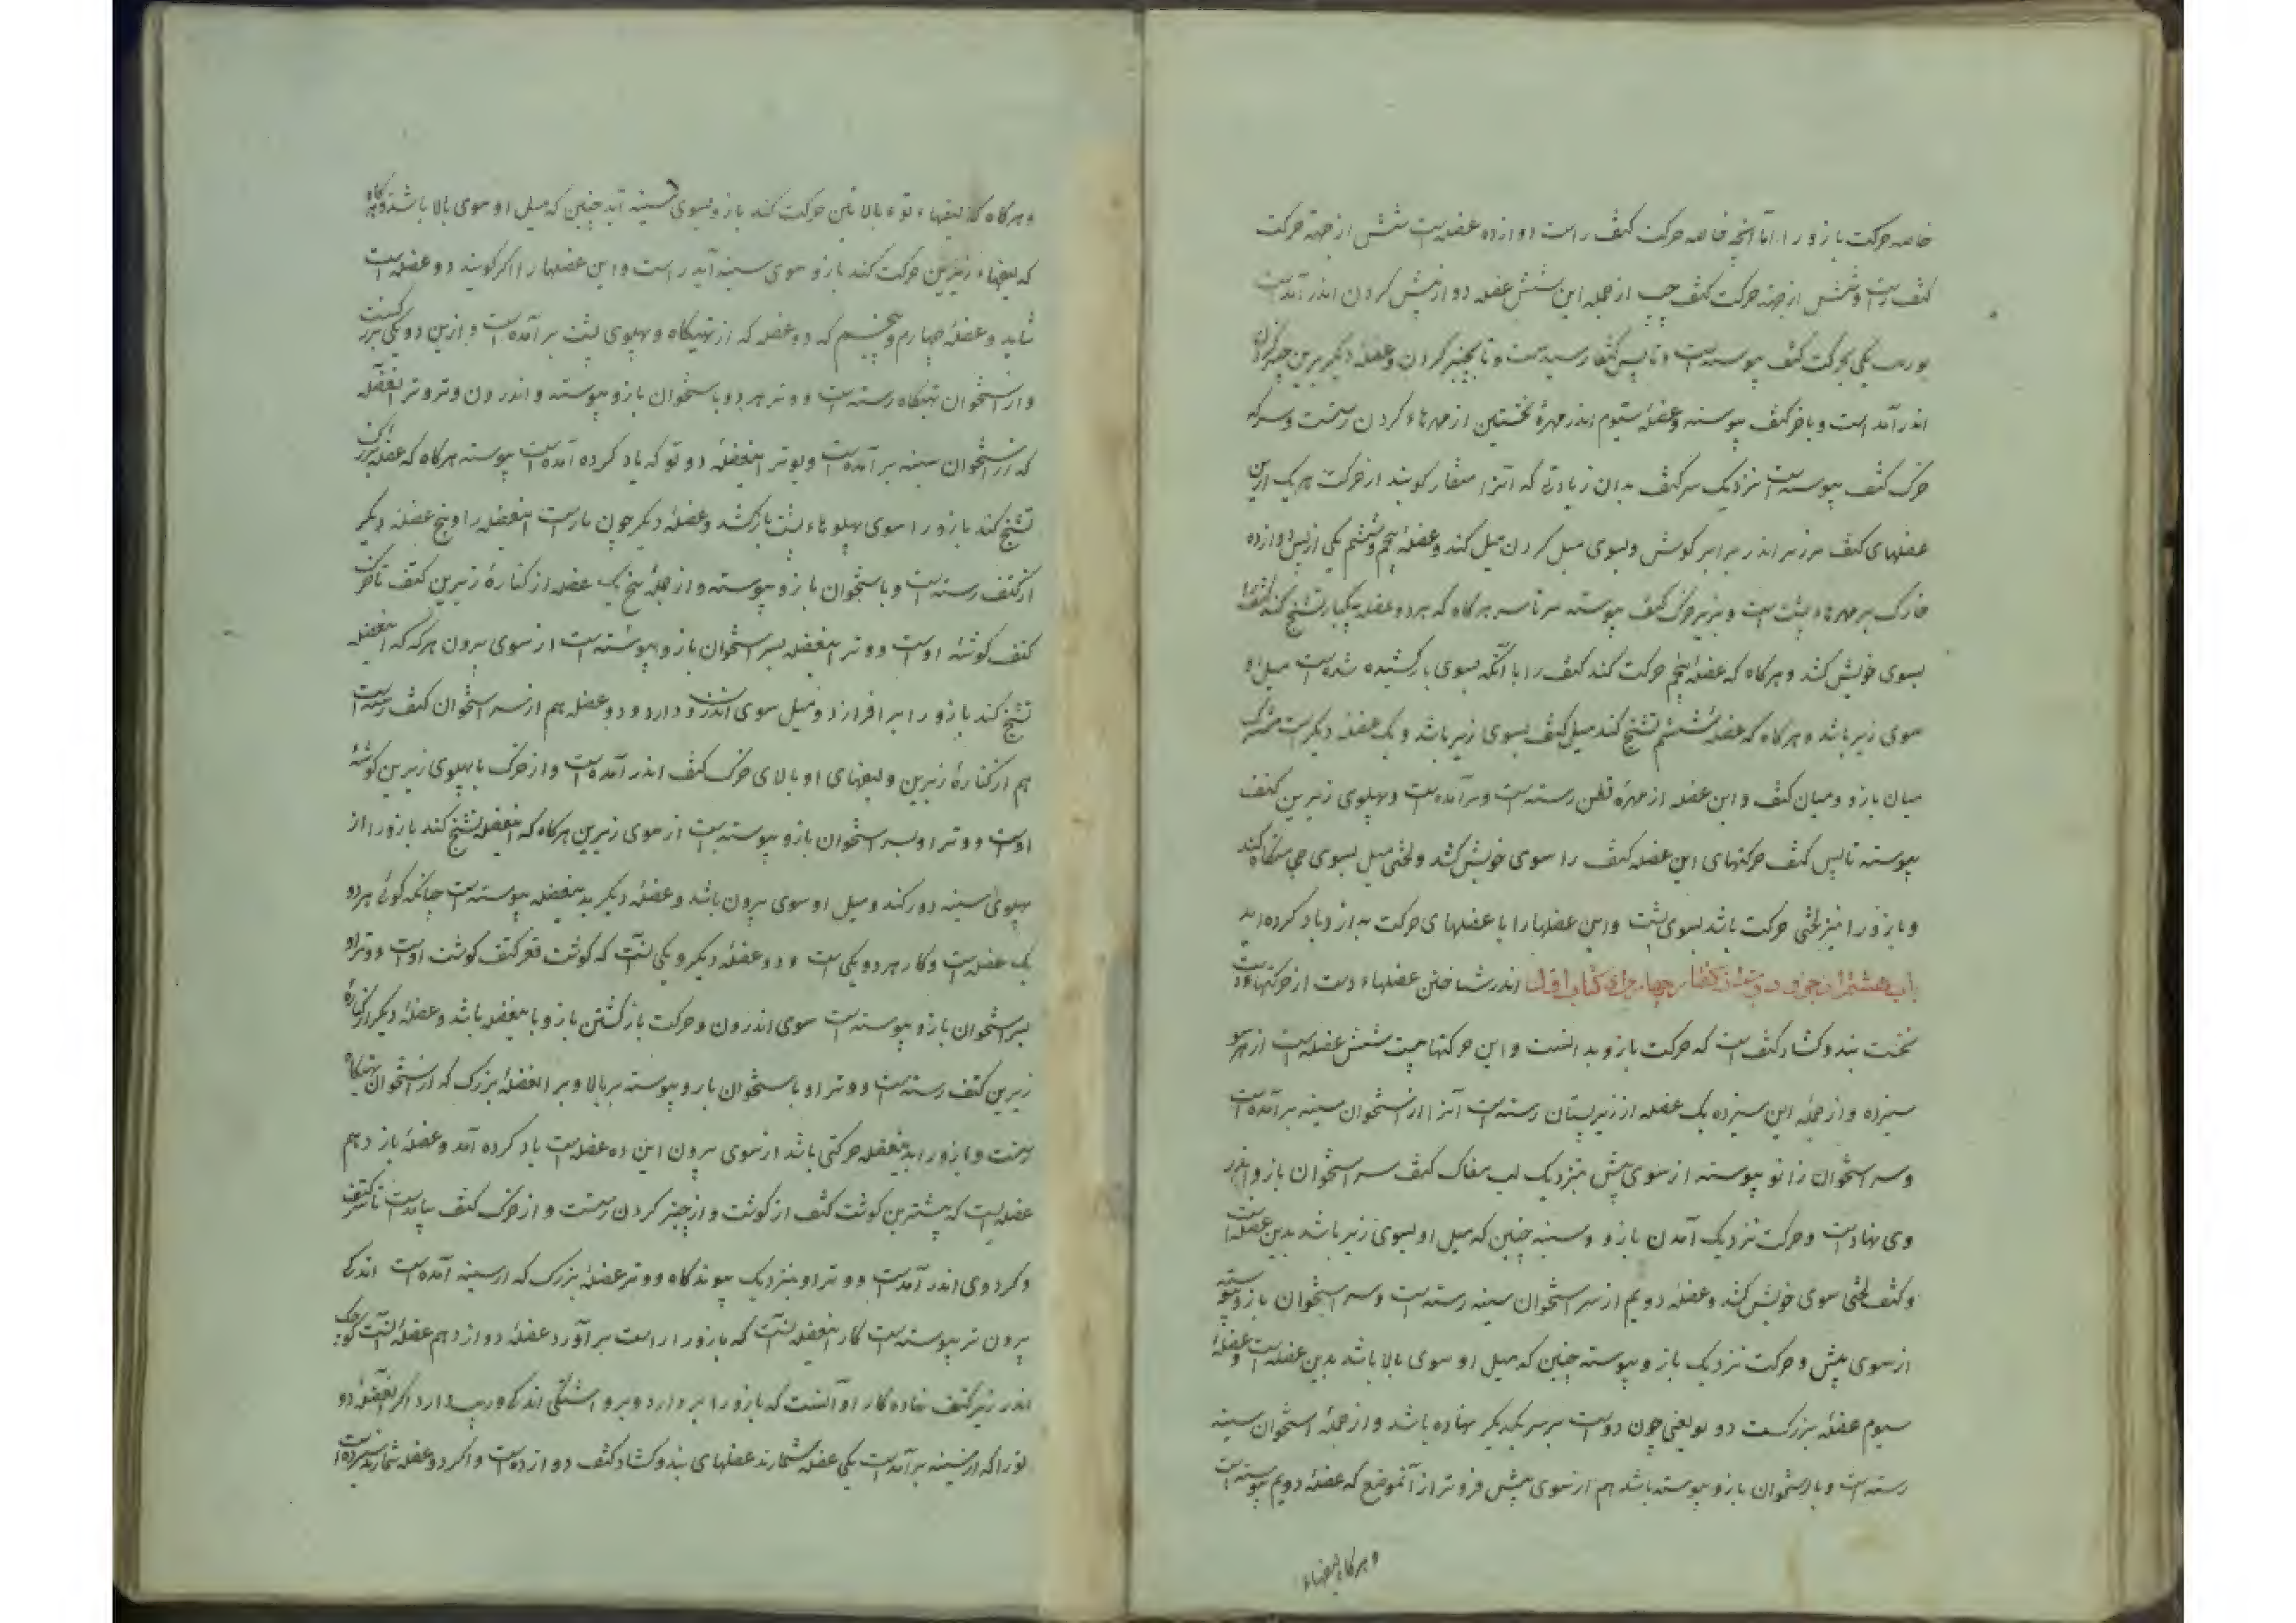 خاصه حرکت بازو را اما آنچه خاصه حرکت کتف راست دوازده عضله است شش از جهة حرکت
کتف راست و شش از جهة حرکت کتف چپ از جمله این شش عضله دو از پیش کردن اندر آمدست
یکی بحرکت کتف پیوسته است و تا پس کتف رسیدست و تا بچنبر کردن و عضلهٔ دیکر برین چنبر کردن
اندر آمد است و باخر کتف پیوسته و عضلهٔ سیوم اندر مهرهٔ نخستین از مهرهاء کردن رستست و سر که
خرک کتف پیوسته است نزدیک سر کتف بدان زیادتی که آنرا منقار کویند از حرکت هر یک ازین
عضلهای کتف برزبر اندر برابر کوش و بسوی میل کردن میل کند و عضلهٔ پنجم و ششم یکی از پس دوازده
خارک بر مهرهاء پشت است و بزیر خرک کتف پیوسته سر تا سر هرکاه که هر دو عضله بیکبار تشنج کند کتف را
بسوی خویش کشد و هرکاه که عضلهٔ پنجم حرکت کند کتف را با آنکه بسوی باز کشیده شده است میل او
سوی زیر باشد و هرکاه که عضلهٔ ششم تشنج کند میل کتف بسوی زیر باشد و یک عضلهٔ دیکر است مشترک
میان بازو و میان کتف و این عضله از مهرهٔ قطن رسته است و برآمده است و پهلوی زیرین کتف
پیوسته تا پس کتف حرکتهای این عضله کتف را سوی خویش کشد و لختی میل بسوی
و بازو را نیز لختی حرکت باشد بسوی پشت و این عضلها را با عضلهای حرکت بازو یاد کرده اند
باب هشتم از جزو دوم از کفتار چهارم از کتاب اول اندر شناختن عضلهاء دست از حرکتهاء دست
نخست بند و کشاد کتف است که حرکت بازو بدانست و این حرکتها بیست شش عضله است از هر سو
سیزده و از جملهٔ این سیزده یک عضله از زیر پستان رسته است آنرا از استخوان سینه برآمده است
و سر استخوان زانو پیوسته از سوی پیش نزدیک لب مغاک کتف سر استخوان بازو اندر
وی نهادست و حرکت نزدیک آمدن بازو و سینه چنین که میل او بسوی زیر باشد بدین عضله است
و کتف لختی سوی خویش کشد و عضلهٔ دویم از سر استخوان سینه رسته است و سر استخوان بازو پیوسته
از سوی پیش و حرکت نزدیک بازو پیوسته چنین که میل او سوی بالا باشد بدین عضله است و عضلهٔ
سیوم عضلهٔ بزرکست دو تو یعنی چون دوست بر سر یکدیکر نهاده باشد و از جملهٔ استخوان سینه
رسته است و با استخوان بازو پیوسته باشد هم از سوی پیش فروتر از آنموضع که عضلهٔ دویم پیوسته است
و هرکاه لیفهاء
و هرکاه که لیفهاء توء بالائین حرکت کند بازو بسوی سینه آید چنین که میل او سوی بالا باشد و هرکاه
که لیفهاء زیرین حرکت کند بازو سوی سینه آید راست و این عضلها را اکر کویند دو عضله است
شاید و عضلهٔ چهارم و پنجم که دو عضله که از تهیکاه و پهلوی پشت برآمده است و ازین دو یکی بزرکست
و از استخوان تهیکاه رسته است و وتر هر دو باستخوان بازو پیوسته و اندرون وتر وتر انعضله
که از استخوان سینه برآمده است و بوتر اینعضله دو تو که یاد کرده آمده است پیوسته هرکاه که عضله بزرک
تشنج کند بازو را سوی پهلوهاء پشت باز کشد و عضلهٔ دیکر چون یارست اینعضله را و پنج عضلهٔ دیکر
از کتف رسته است و باستخوان بازو پیوسته و از جملهٔ پنج یک عضله از کنارهٔ زیرین کتف تا خرک
کتف کوشهٔ اوست و وتر اینعضله بسر استخوان بازو پیوسته است از سوی بیرون هرکه که اینعضله
تشنج کند بازو را برافرازد و میل سوی اندرون دارد و دو عضله هم از سر استخوان کتف رسته است
هم از کنارهٔ زیرین و لیفهای او بالای خرک کتف اندر آمده است و از خرک با پهلوی زیرین کوشهٔ
اوست و وتر او بسر استخوان بازو پیوسته است از سوی زیرین هرکاه که اینعضله تشنج کند بازو را از
پهلوی سینه دور کند و میل او سوی بیرون باشد و عضلهٔ دیکر بدینعضله پیوسته است چنانکه کوئی هر دو
یک عضله است و کار هر دو یکی است و دو عضلهٔ دیکر و یکی آنست که کوشت قعر کتف کوشت اوست و وتر او
بسر استخوان بازو پیوسته است سوی اندرون و حرکت باز کشتن بازو با اینعضله باشد و عضلهٔ دیکر از کنارهٔ
زیرین کتف رسته است و وتر او باستخوان بازو پیوسته بر بالا و بر انعضلهٔ بزرک که از استخوان تهیکاه
رستست و بازو را بدینعضله حرکتی باشد از سوی بیرون این ده عضله است یاد کرده آمد و عضلهٔ یازدهم
عضله ایست که بیشترین کوشت کتف از کوشت و از چنبر کردن رستست و از خرک کتف بیامدست تا سر کتف
و کرد وی اندر آمدست و وتر او بنزدیک پیوندکاه و وتر عضلهٔ بزرک که از سینه آمده است اندکی
بیرون تر پیوسته است کار اینعضله آنست که بازو را راست برآورد عضلهٔ دوازدهم عضلهٔ آنست کوچک
اندر زیر کتف نهاده کار او آنست که بازو را بردارد و برو اشتکی اندکی وریب دارد اکر انعضلهٔ دو
تو را که از سینه برآمدست یکی عضله شمارند عضلهای بند و کشاد کتف دوازده است و اکر دو عضله شمارند سیزده است